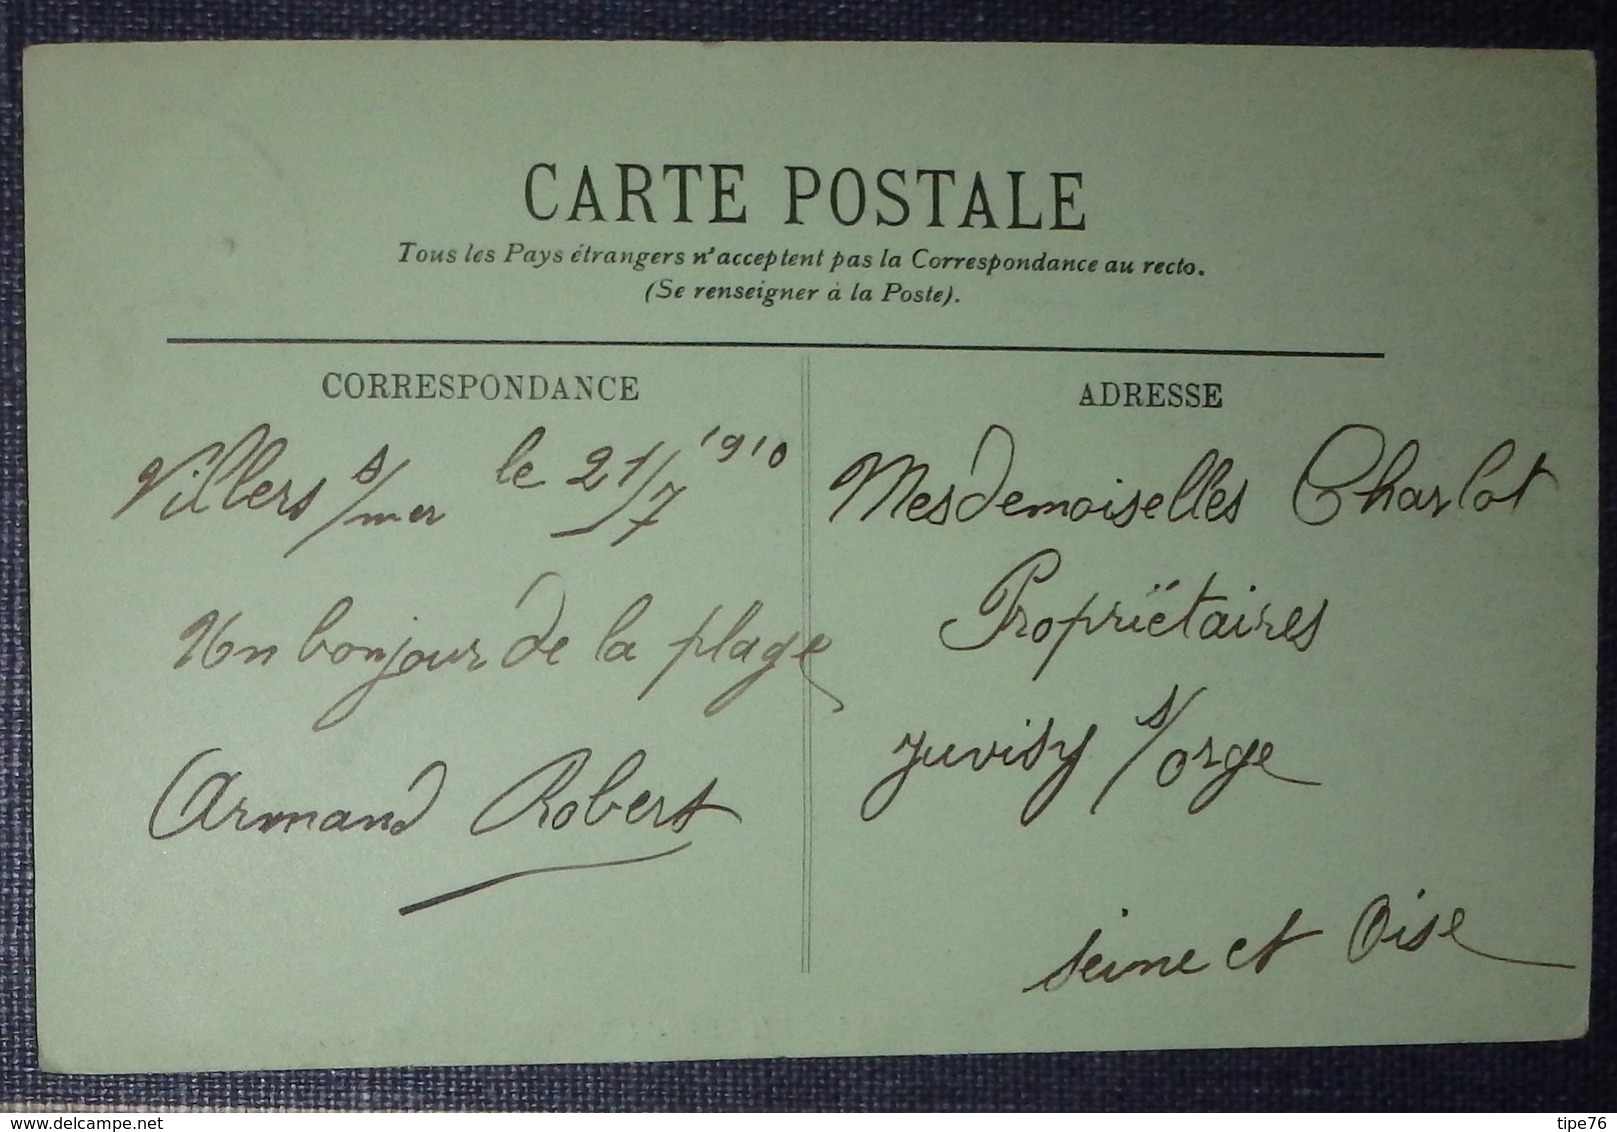 CARTE POSTALE
Tous les Pays étrangers n'acceptent pas la Correspondance au recto.
(Se renseigner à la Poste).
CORRESPONDANCE
Villers s/mer le 21/7 1910
Un bonjour de la plage
Armand Robert
ADRESSE
Mesdemoiselles Charlot
Propriëtaires
Juvisy s/orge
Seine et Oise
tipe76